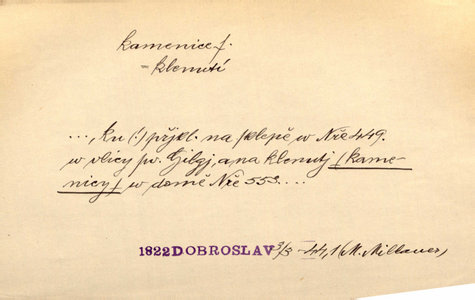 kamenice f.
= klenutí
..., ku (!) přjkl. na sklepě w Nře 449.
w vlicy sw. Gilgj, a na klenutj (kame-
nicy) w domě Nře 553....
1822 DOBROSLAV 3/3 - 44, 1 (M. Millauer)